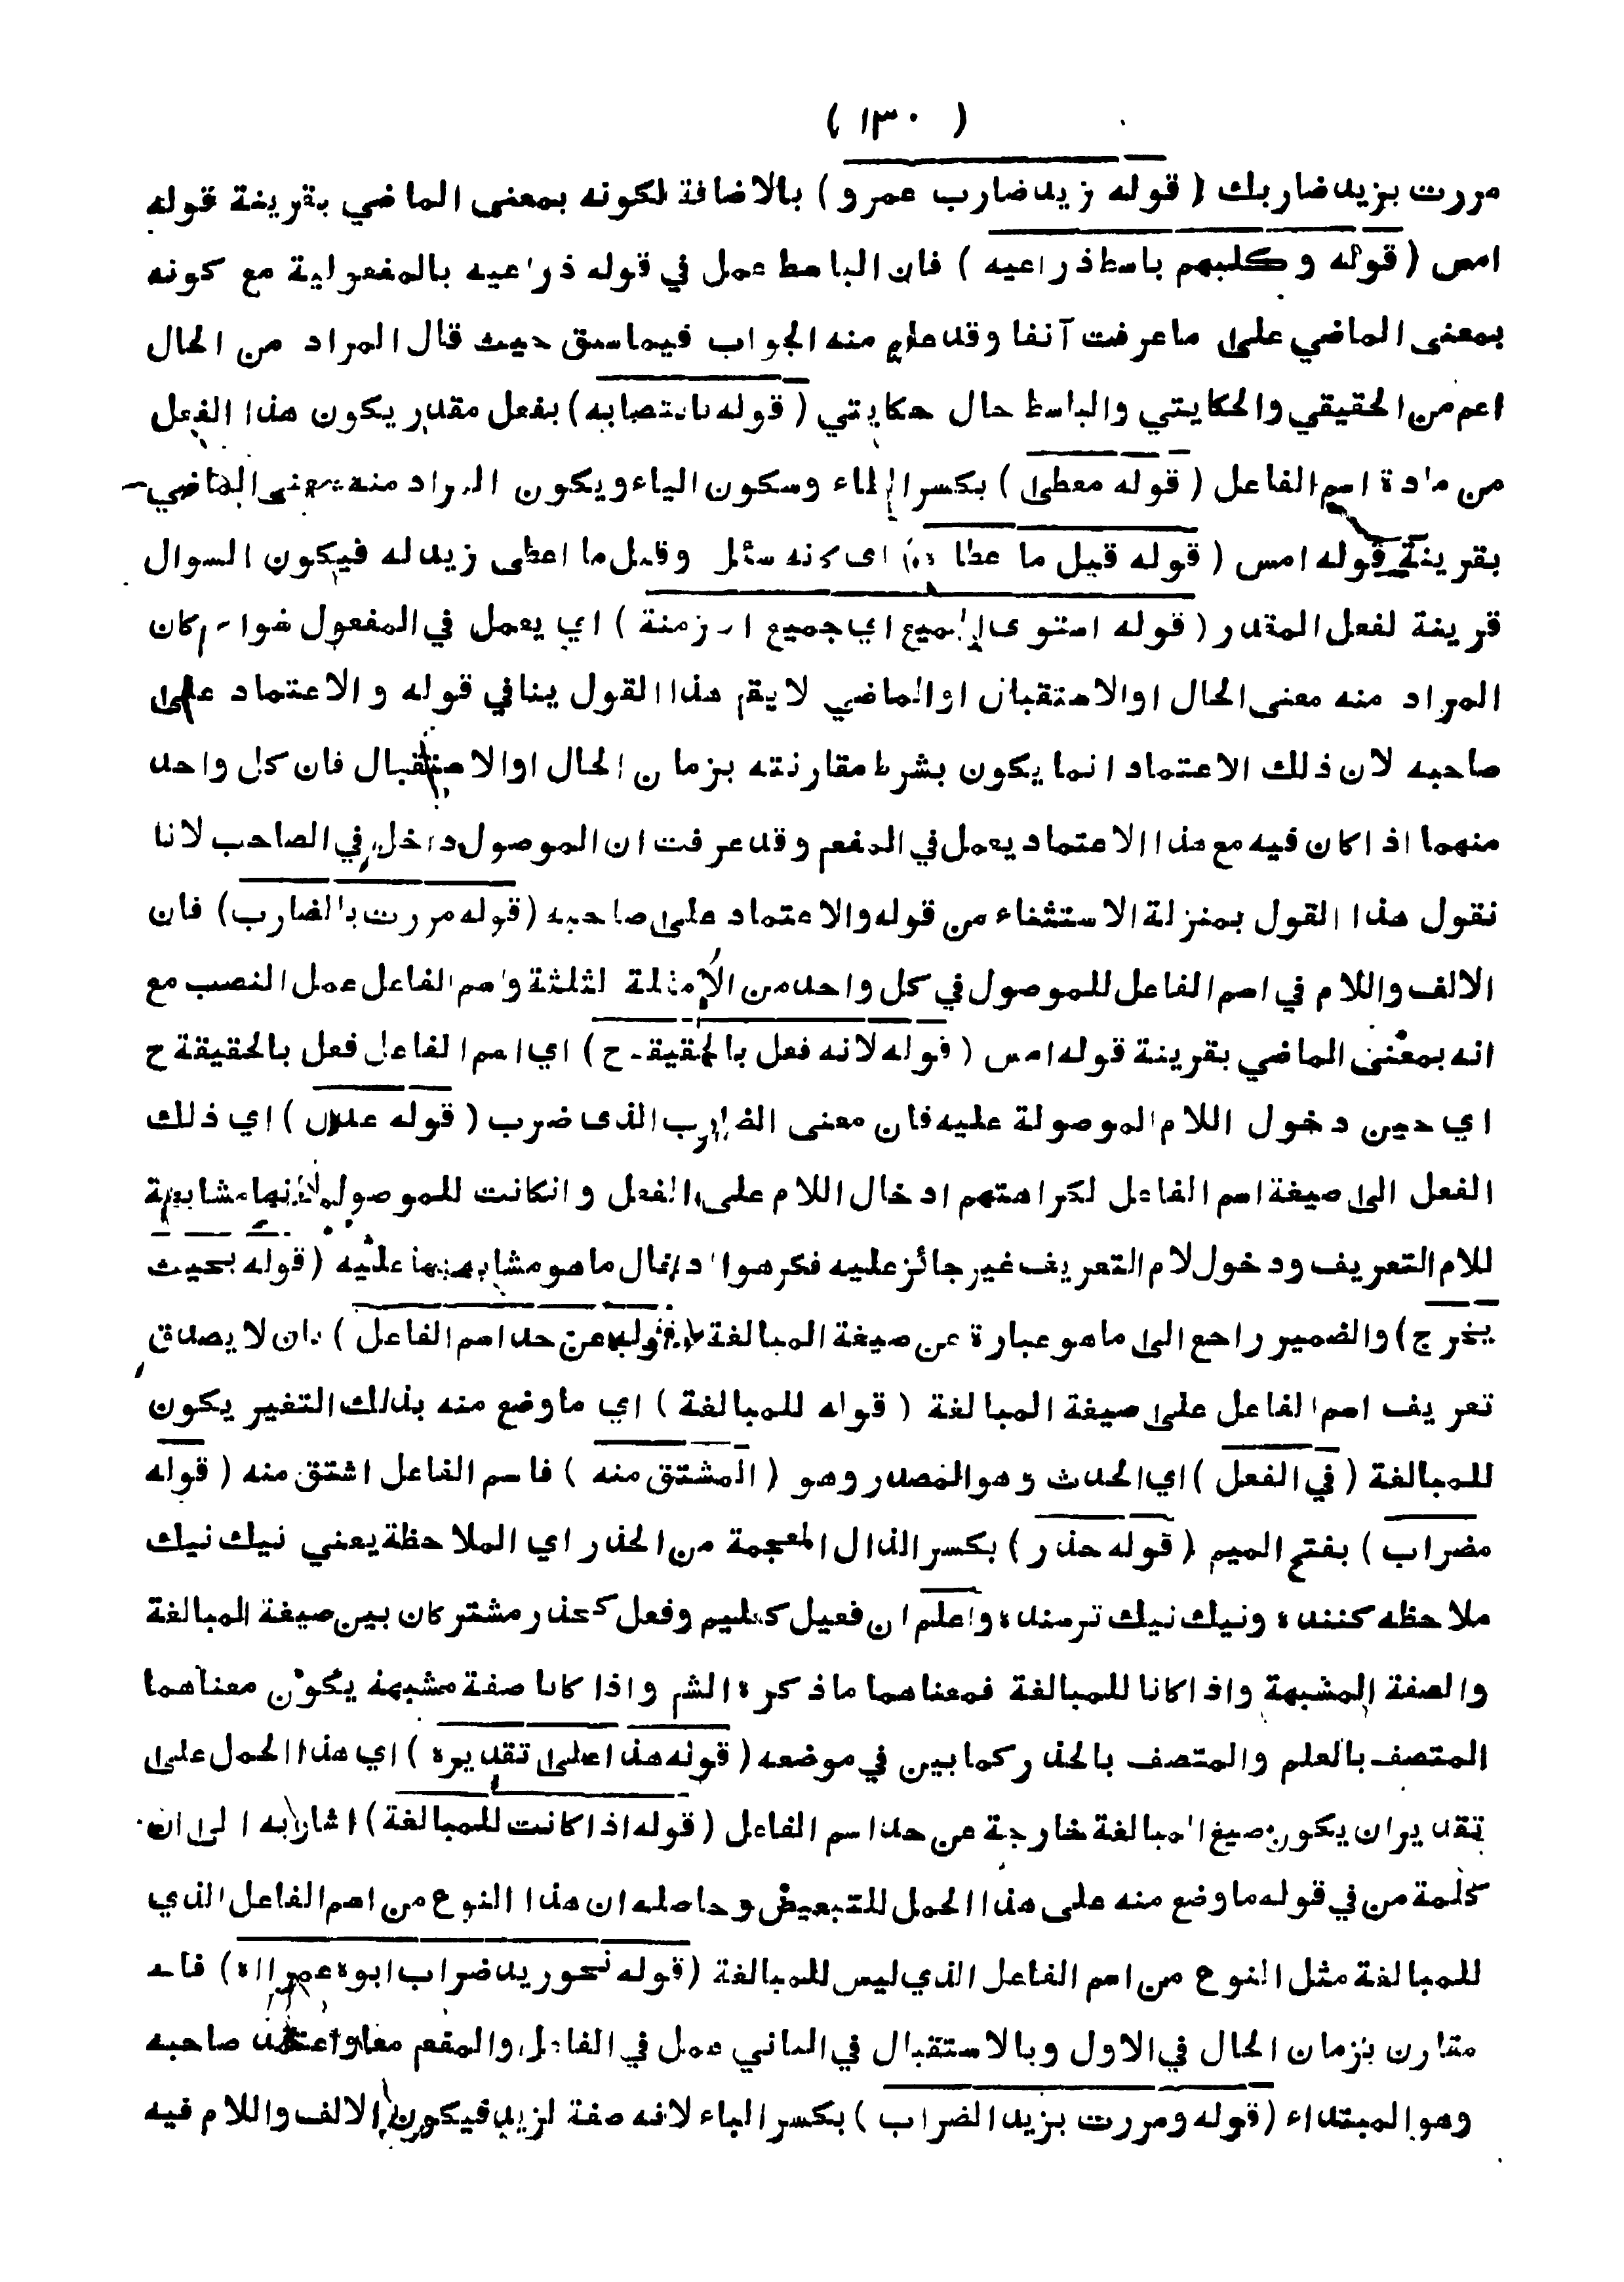 ( ١٣٠ )
مررت بزيد ضاربك ( قوله زيد ضارب عمرو ) بالاضافة لكونه بمعنى الماضي بقرينة قوله
امس ( قوله وكلبهم باسط ذراعيه ) فان الباسط عمل في قوله ذراعيه بالمفعولية مع كونه
بمعنى الماضي على ما عرفت آنفا وقد علم منه الجواب فيما سبق حيث قال المراد من الحال
اعم من الحقيقي والحكايتي والباسط حال حكايتي ( قوله بانتصابه ) بفعل مقدر يكون هذا الفعل
من مادة اسم الفاعل ( قوله معطى ) بكسر الطاء وسكون الياء ويكون المراد منه بمعنى الماضي
بقرينة قوله امس ( قوله قيل ما عطا اى كانه سئل وقيل ما اعطى زيد له فيكون السوال
قرينة لفعل المقدر ( قوله استوى الجميع اي جميع الازمنة ) اي يعمل في المفعول سواء كان
المراد منه معنى الحال او الاستقبال او الماضي لا يقم هذا القول ينافي قوله والاعتماد على
صاحبه لان ذلك الاعتماد انما يكون بشرط مقارنته بزمان الحال او الاستقبال فان كل واحد
منهما اذا كان فيه مع هذا الاعتماد يعمل في المفعم وقد عرفت ان الموصول داخل في الصاحب لانا
نقول هذا القول بمنزلة الاستثناء من قوله والاعتماد على صاحبه ( قوله مررت بالضارب ) فان
الالف واللام في اسم الفاعل للموصول في كل واحد من الامثلة لثلثة واسم الفاعل عمل النصب مع
انه بمعنى الماضي بقرينة قوله امس ( قوله لانه فعل بالحقيقة ح ) اي اسم الفاعل فعل بالحقيقة ح
اي حين دخول اللام الموصولة عليه فان معنى الضارب الذى ضرب ( قوله عدل ) اي ذلك
الفعل الى صيغة اسم الفاعل لكراهتهم ادخال اللام على الفعل وانكانت للموصول لانها مشابهة
للام التعريف ودخول لام التعريف غير جائز عليه فكرهوا ادخال ما هو مشابه بها عليه ( قوله بحيث
يخرج ) والضمير راجع الى ما هو عبارة عن صيغة المبالغة ( قوله عن حد اسم الفاعل ) بان لا يصدق
تعريف اسم الفاعل على صيغة المبالغة ( قوله للمبالغة ) اي ما وضع منه بذلك التغير يكون
للمبالغة ( في الفعل ) اي الحدث وهو المصدر وهو ( المشتق منه ) فاسم الفاعل اشتق منه ( قوله
مضراب ) بفتح الميم ( قوله حذر ) بكسر الذال المعجمة من الحذر اي الملاحظة يعني نيك نيك
ملاحظه كننده ونيك نيك ترسنده واعلم ان فعيل كعليم وفعل كحذر مشتركان بين صيغة المبالغة
والصفة المشبهة واذا كانا للمبالغة فمعناهما ما ذكره الشم واذا كانا صفة مشبهة يكون معناهما
المتصف بالعلم والمتصف بالحذر كما بين في موضعه ( قوله هذا على تقديره ) اي هذا الحمل على
تقدير ان يكون صيغ المبالغة خارجة عن حد اسم الفاعل ( قوله اذا كانت للمبالغة ) اشار به الى ان
كلمة من في قوله ما وضع منه على هذا الحمل للتبعيض وحاصله ان هذا النوع من اسم الفاعل الذي
للمبالغة مثل النوع من اسم الفاعل الذي ليس للمبالغة ( قوله نحو زيد ضراب ابوه عمرا اه ) فانه
مقارن بزمان الحال في الاول وبالاستقبال في الثاني عمل في الفاعل والمفعم معا واعتمد صاحبه
وهو المبتداء ( قوله ومررت بزيد الضراب ) بكسر الباء لانه صفة لزيد فيكون الالف واللام فيه